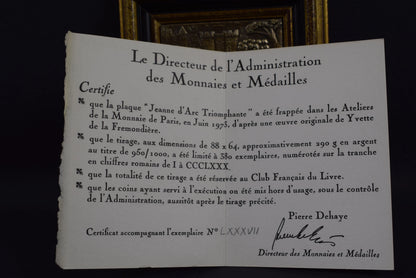 Le Directeur de l'Administration
des Monnaies et Médailles
Certifie
que la plaque "Jeanne d'Arc Triomphante" a été frappée dans les Ateliers
de la Monnaie de Paris, en Juin 1975, d'après une œuvre originale de Yvette
de la Fremondière.
que le tirage, aux dimensions de 88 x 64, approximativement 290 g en argent
au titre de 950/1000, a été limité à 380 exemplaires, numérotés sur la tranche
en chiffres romains de I à CCCLXXX.
que la totalité de ce tirage a été réservée au Club Français du Livre.
que les coins ayant servi à l'exécution ou été mis hors d'usage, sous le contrôle
de l'Administration, aussitôt après le tirage précité.
Pierre Dehaye
Certificat accompagnant l'exemplaire N° LXXXVII
Directeur des Monnaies et Médailles